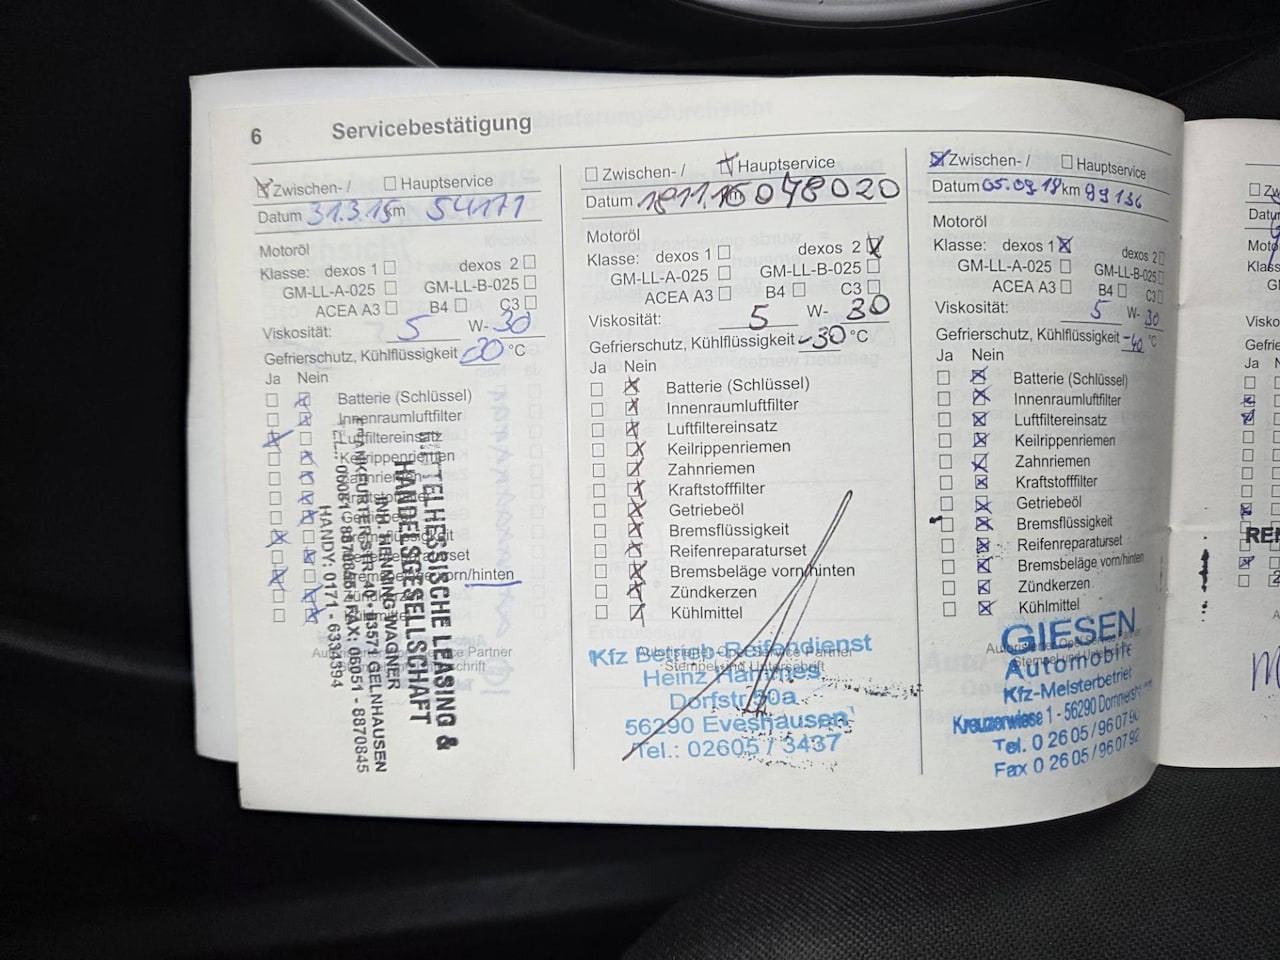 6 Servicebestätigung
Zwischen- / Hauptservice
Datum 31.3.15 km 54171
Motoröl
Klasse: dexos 1 dexos 2
GM-LL-A-025 GM-LL-B-025
ACEA A3 B4 C3
Viskosität: 5 W- 30
Gefrierschutz, Kühlflüssigkeit -30 °C
Ja Nein
Batterie (Schlüssel)
Innenraumluftfilter
Luftfiltereinsatz
Keilrippenriemen
Zahnriemen
vorn/hinten
MITTELHESSISCHE LEASING &
HANDELSGESELLSCHAFT
INH. HENNING WAGNER
FRANKFURTER STR. 40 • 63571 GELNHAUSEN
FAX: 06051 - 8870845
HANDY: 0171 - 6334394
Zwischen- / Hauptservice
Datum 18.11.16 048020
Motoröl
Klasse: dexos 1 dexos 2
GM-LL-A-025 GM-LL-B-025
ACEA A3 B4 C3
Viskosität: 5 W- 30
Gefrierschutz, Kühlflüssigkeit -30 °C
Ja Nein
Batterie (Schlüssel)
Innenraumluftfilter
Luftfiltereinsatz
Keilrippenriemen
Zahnriemen
Kraftstofffilter
Getriebeöl
Bremsflüssigkeit
Reifenreparaturset
Bremsbeläge vorn/hinten
Zündkerzen
Kühlmittel
Autorisierter Opel Service Partner
Stempel und Unterschrift
Kfz Betrieb-Reifendienst
Heinz Hammes
Dorfstr. 50a
56290 Eveshausen
Tel.: 02605 / 3437
Zwischen- / Hauptservice
Datum 05.09.18 km 99136
Motoröl
Klasse: dexos 1 dexos 2
GM-LL-A-025 GM-LL-B-025
ACEA A3 B4 C3
Viskosität: 5 W- 30
Gefrierschutz, Kühlflüssigkeit -40 °C
Ja Nein
Batterie (Schlüssel)
Innenraumluftfilter
Luftfiltereinsatz
Keilrippenriemen
Zahnriemen
Kraftstofffilter
Getriebeöl
Bremsflüssigkeit
Reifenreparaturset
Bremsbeläge vorn/hinten
Zündkerzen
Kühlmittel
GIESEN
Automobile
Kfz-Meisterbetrieb
Kreuzerwiese 1 - 56290 Dommers
Tel. 0 26 05 / 96 07 90
Fax 0 26 05 / 96 07 92